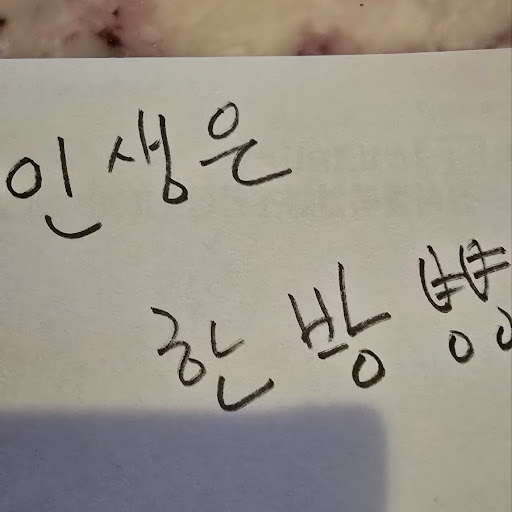 인생은
한방